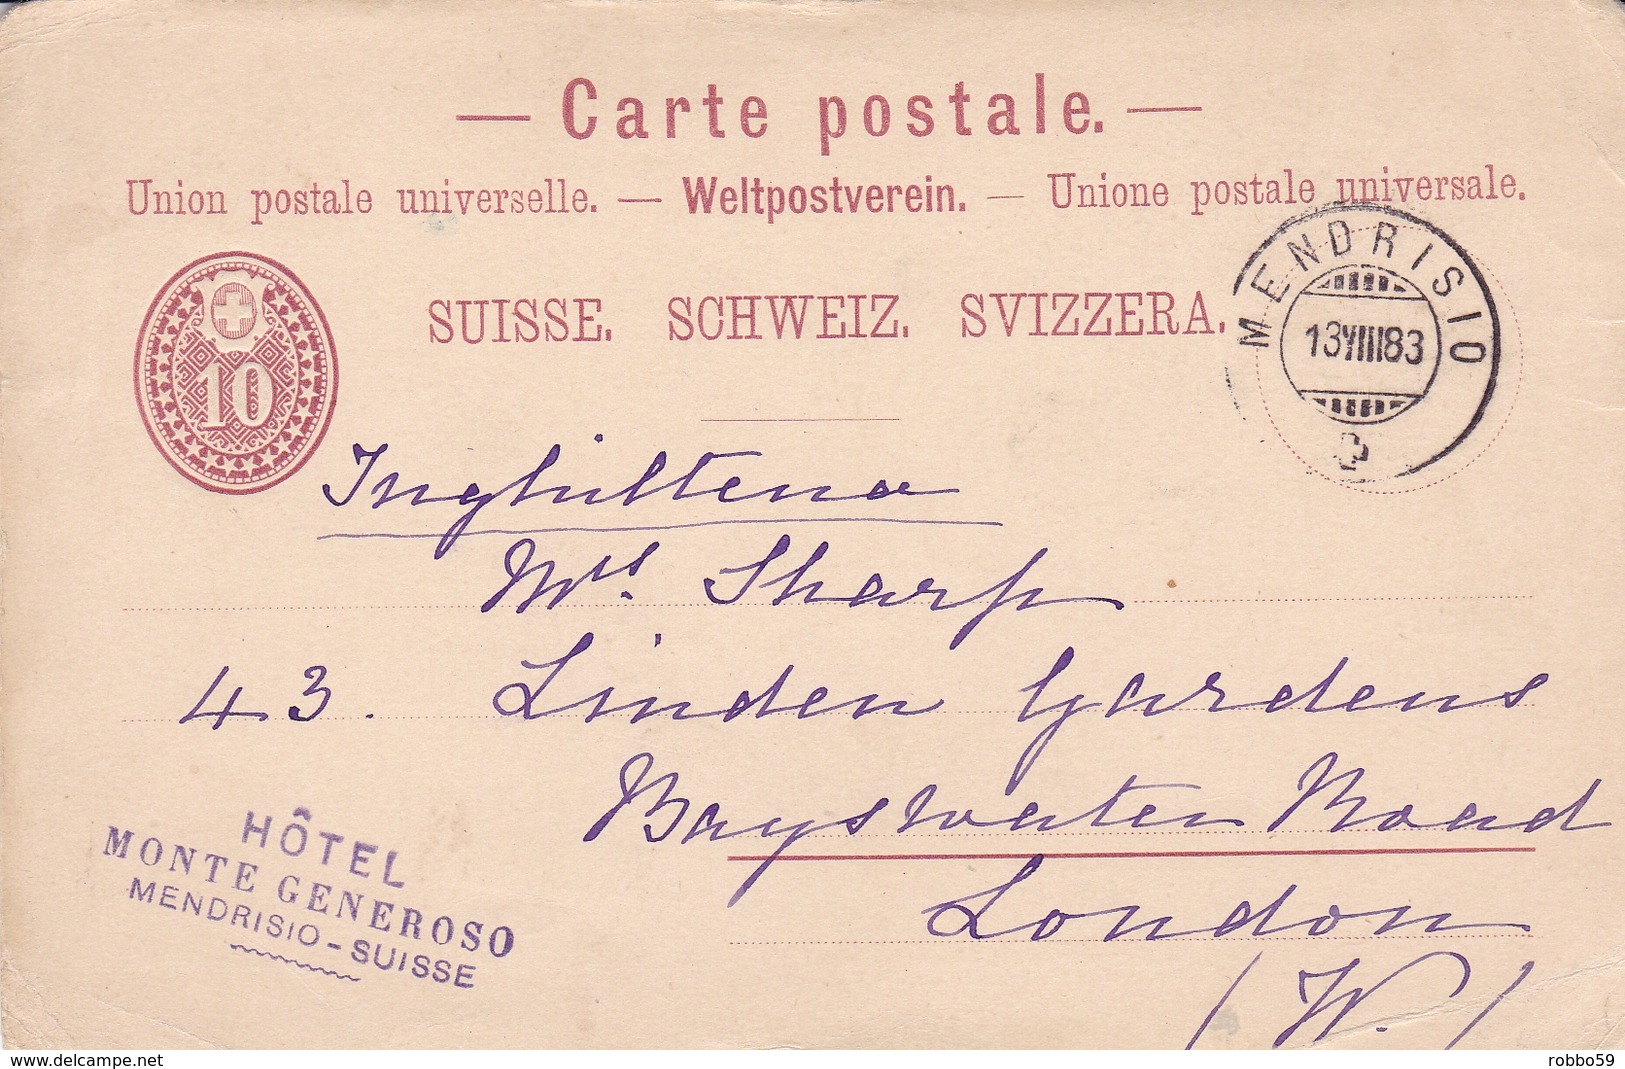 — Carte postale. —
Union postale universelle. — Weltpostverein. — Unione postale universale.
SUISSE. SCHWEIZ. SVIZZERA.
10
MENDRISIO
13VIII83
Inghilterra
Mrs. Sharp
43. Linden Gardens
Bayswater Road
London
(W.)
HÔTEL
MONTE GENEROSO
MENDRISIO-SUISSE
www.delcampe.net
robbo59